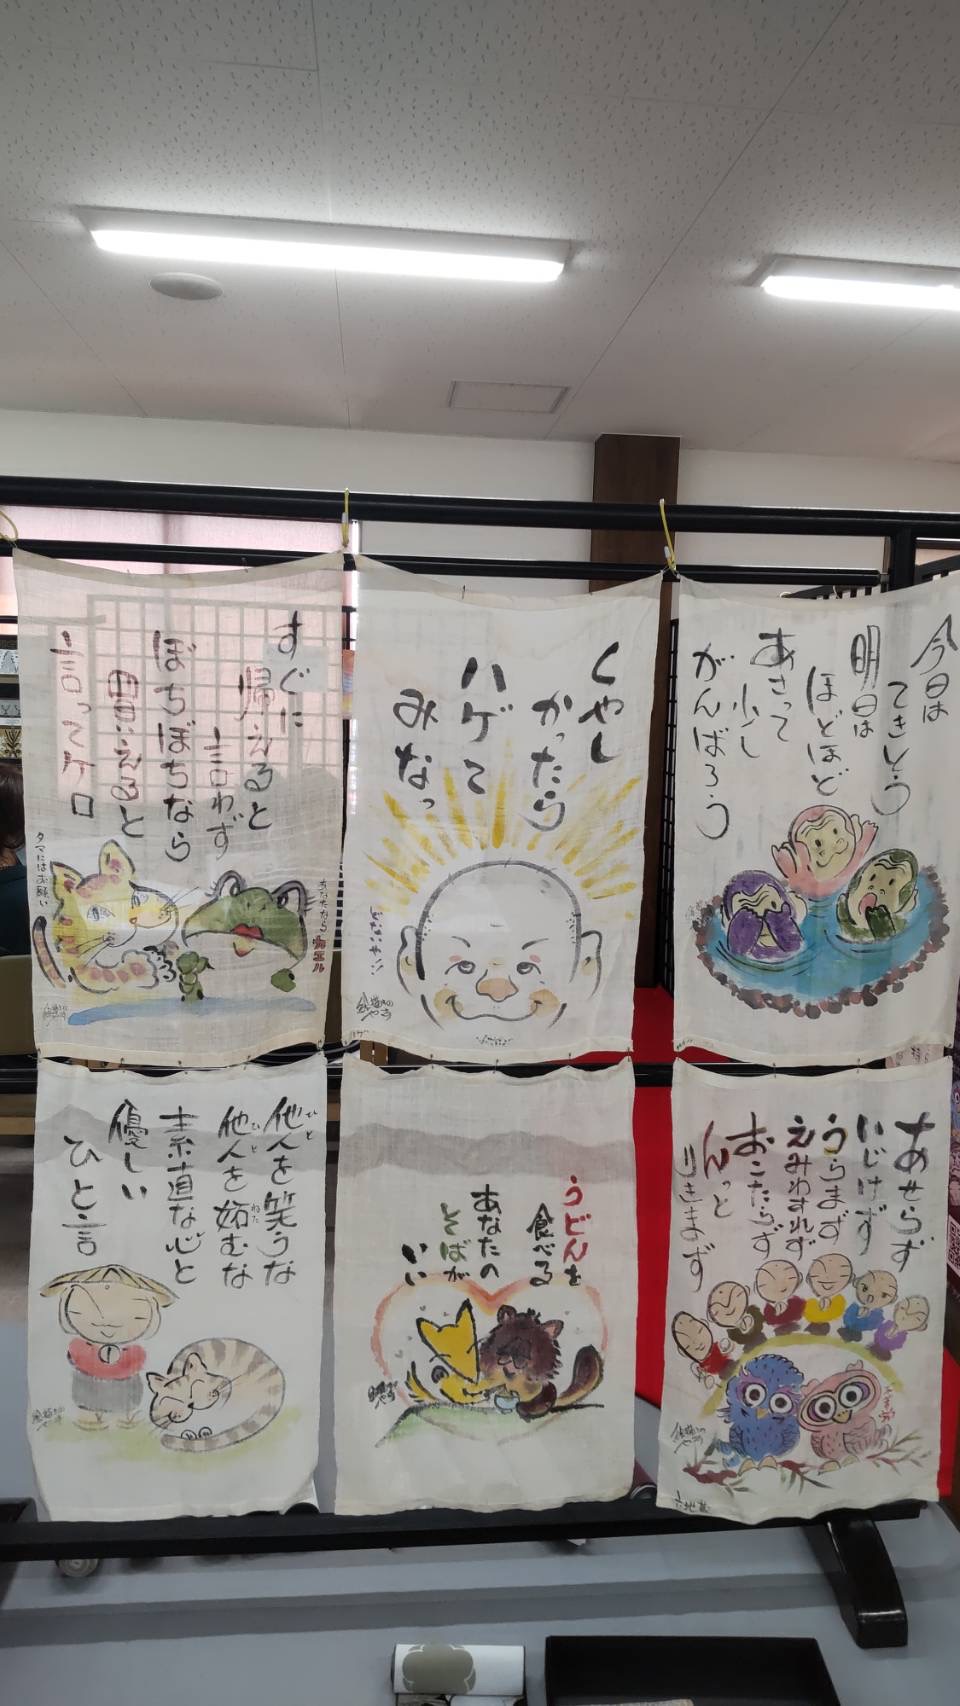 今日は
てきとう
明日は
ほどほど
あさって
少し
がんばろう
くやし
かったら
ハゲて
みなっ
どないや!!
すぐに
帰えると
言わず
ぼちぼちなら
言ってケロ
タマにはお願い
カエル
あせらず
いじけず
うらまず
えみわすれず
おこたらず
んっと
りきまず
六地蔵
うどんを
食べる
あなたの
そばが
いい
他人を笑うな
ひと
他人を妬むな
ひと
ねた
素直な心と
優しい
ひと言